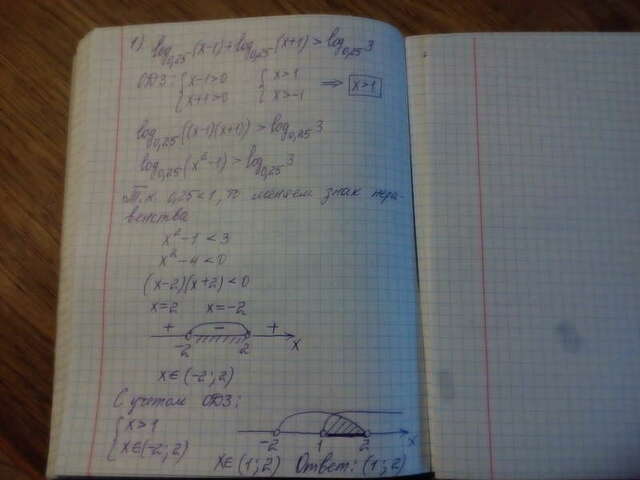 1) log₀,₂₅(x-1)+log₀,₂₅(x+1)>log₀,₂₅3
ОДЗ: {x-1>0 {x>1
{x+1>0 {x>-1 ⇒ x>1
log₀,₂₅((x-1)(x+1))>log₀,₂₅3
log₀,₂₅(x²-1)>log₀,₂₅3
Т.к. 0,25<1, то меняем знак нера-
венства
x²-1<3
x²-4<0
(x-2)(x+2)<0
x=2 x=-2
+ - +
-2 2 x
x∈(-2;2)
С учетом ОДЗ:
{x>1
{x∈(-2;2)
-2 1 2 x
x∈(1;2) Ответ: (1;2)